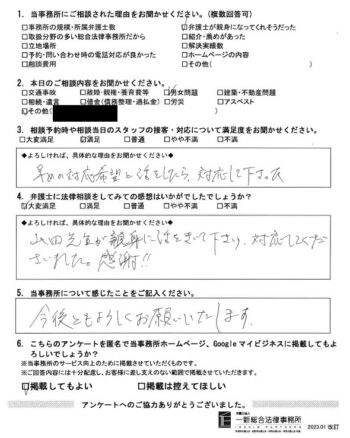 1. 当事務所にご相談された理由をお聞かせください。(複数回答可)
□事務所の規模・所属弁護士数 ☑弁護士が親身になってくれそうだった
□取扱分野の多い総合法律事務所だから □紹介・薦めがあった
□立地場所 □解決実績数
□予約・問い合わせ時の電話対応が良かった □ホームページの内容
□相談費用 □その他( )
2. 本日のご相談内容をお聞かせください。
□交通事故 □離婚・親権・養育費等 □男女問題 □建築・不動産問題
□相続・遺言 □借金(債務整理・過払金) □労災 □アスベスト
☑その他(
3. 相談予約時や相談当日のスタッフの接客・対応について満足度をお聞かせください。
□大変満足 ☑満足 □普通 □やや不満 □不満
◆よろしければ、具体的な理由をお聞かせください◆
早めの対応希望と話をしたら、対応して下さった
4. 弁護士に法律相談をしてみての感想はいかがでしたでしょうか?
☑大変満足 □満足 □普通 □やや不満 □不満
◆よろしければ、具体的な理由をお聞かせください◆
山田先生が親身に話をきいて下さり、対応してくだ
さいました。感謝!!
5. 当事務所について感じたことをご記入ください。
今後ともよろしくお願いいたします。
6. こちらのアンケートを匿名で当事務所ホームページ、Googleマイビジネスに掲載してもよ
ろしいでしょうか?
※当事務所のサービス向上のために掲載させていただくものです。
※ご回答内容には十分配慮し、お客様に差し支えのない範囲で掲載させていただきます。
☑掲載してもよい □掲載は控えてほしい
アンケートへのご協力ありがとうございました。
弁護士法人
一新総合法律事務所
ISSHIN PARTNERS
2023.01 改訂